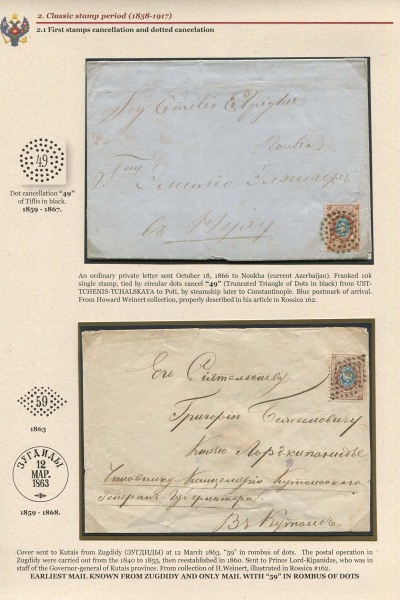 2. Classic stamp period (1858-1917)
2.1 First stamps cancellation and dotted cancelation
49
Dot cancellation "49"
of Tiflis in black.
1859 - 1867.
Noukha
Въ Нуху
An ordinary private letter sent October 18, 1866 to Noukha (current Azerbaijan). Franked 10k
single stamp, tied by circular dots cancel "49" (Truncated Triangle of Dots in black) from UST-
TCHENIS-TCHALSKAYA to Poti, by steamship later to Constantinople. Blue postmark of arrival.
From Howard Weinert collection, properly described in his article in Rossica 162.
59
1863
ЗУГДИДЫ
12
МАР.
1863
1859 - 1868.
Его Сіятельству
Григорію
Князю
Чиновнику Канцеляріи Кутаисскаго
Генералъ Губернатора.
Въ Кутаисъ
Cover sent to Kutais from Zugdidy (ЗУГДИДЫ) at 12 March 1863. "59" in rombus of dots. The postal operation in
Zugdidy were carried out from the 1840 to 1855, then reestablished in 1860. Sent to Prince Lord-Kipanidze, who was in
staff of the Governor-general of Kutais province. From collection of H.Weinert, illustrated in Rossica #162.
EARLIEST MAIL KNOWN FROM ZUGDIDY AND ONLY MAIL WITH "59" IN ROMBUS OF DOTS